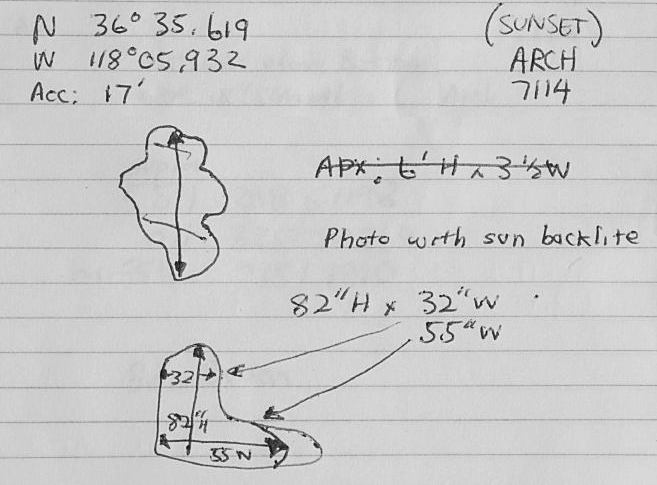 N 36° 35.619
W 118° 05.932
Acc: 17'
(SUNSET)
ARCH
7114
APX: 6' H x 3 1/2 W
Photo with sun backlite
82" H x 32" W
55" W
32
82" H
55 W